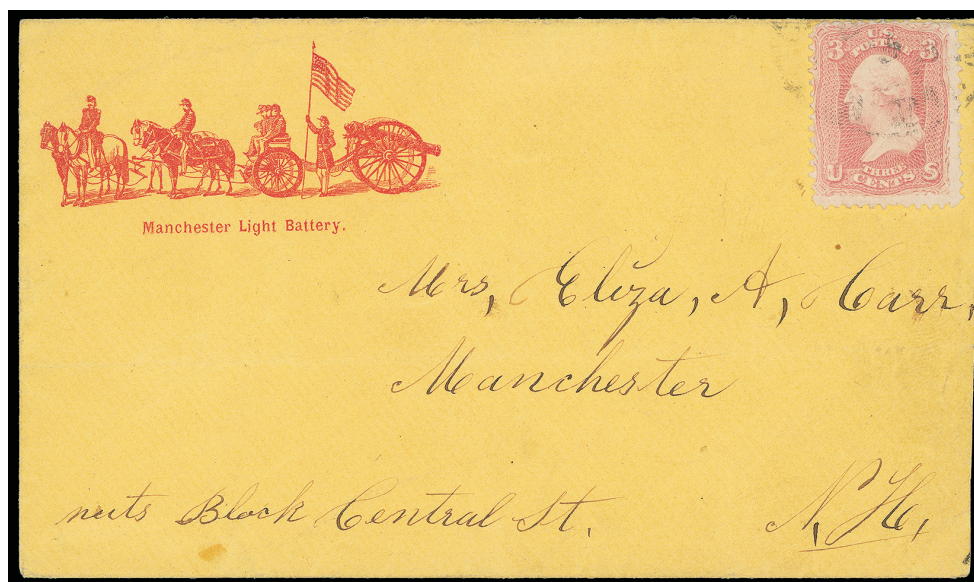 3 U.S. POSTAGE 3
U THREE CENTS S
Manchester Light Battery.
Mrs, Eliza, A, Carr,
Manchester
nuts Block Central St. N, H,